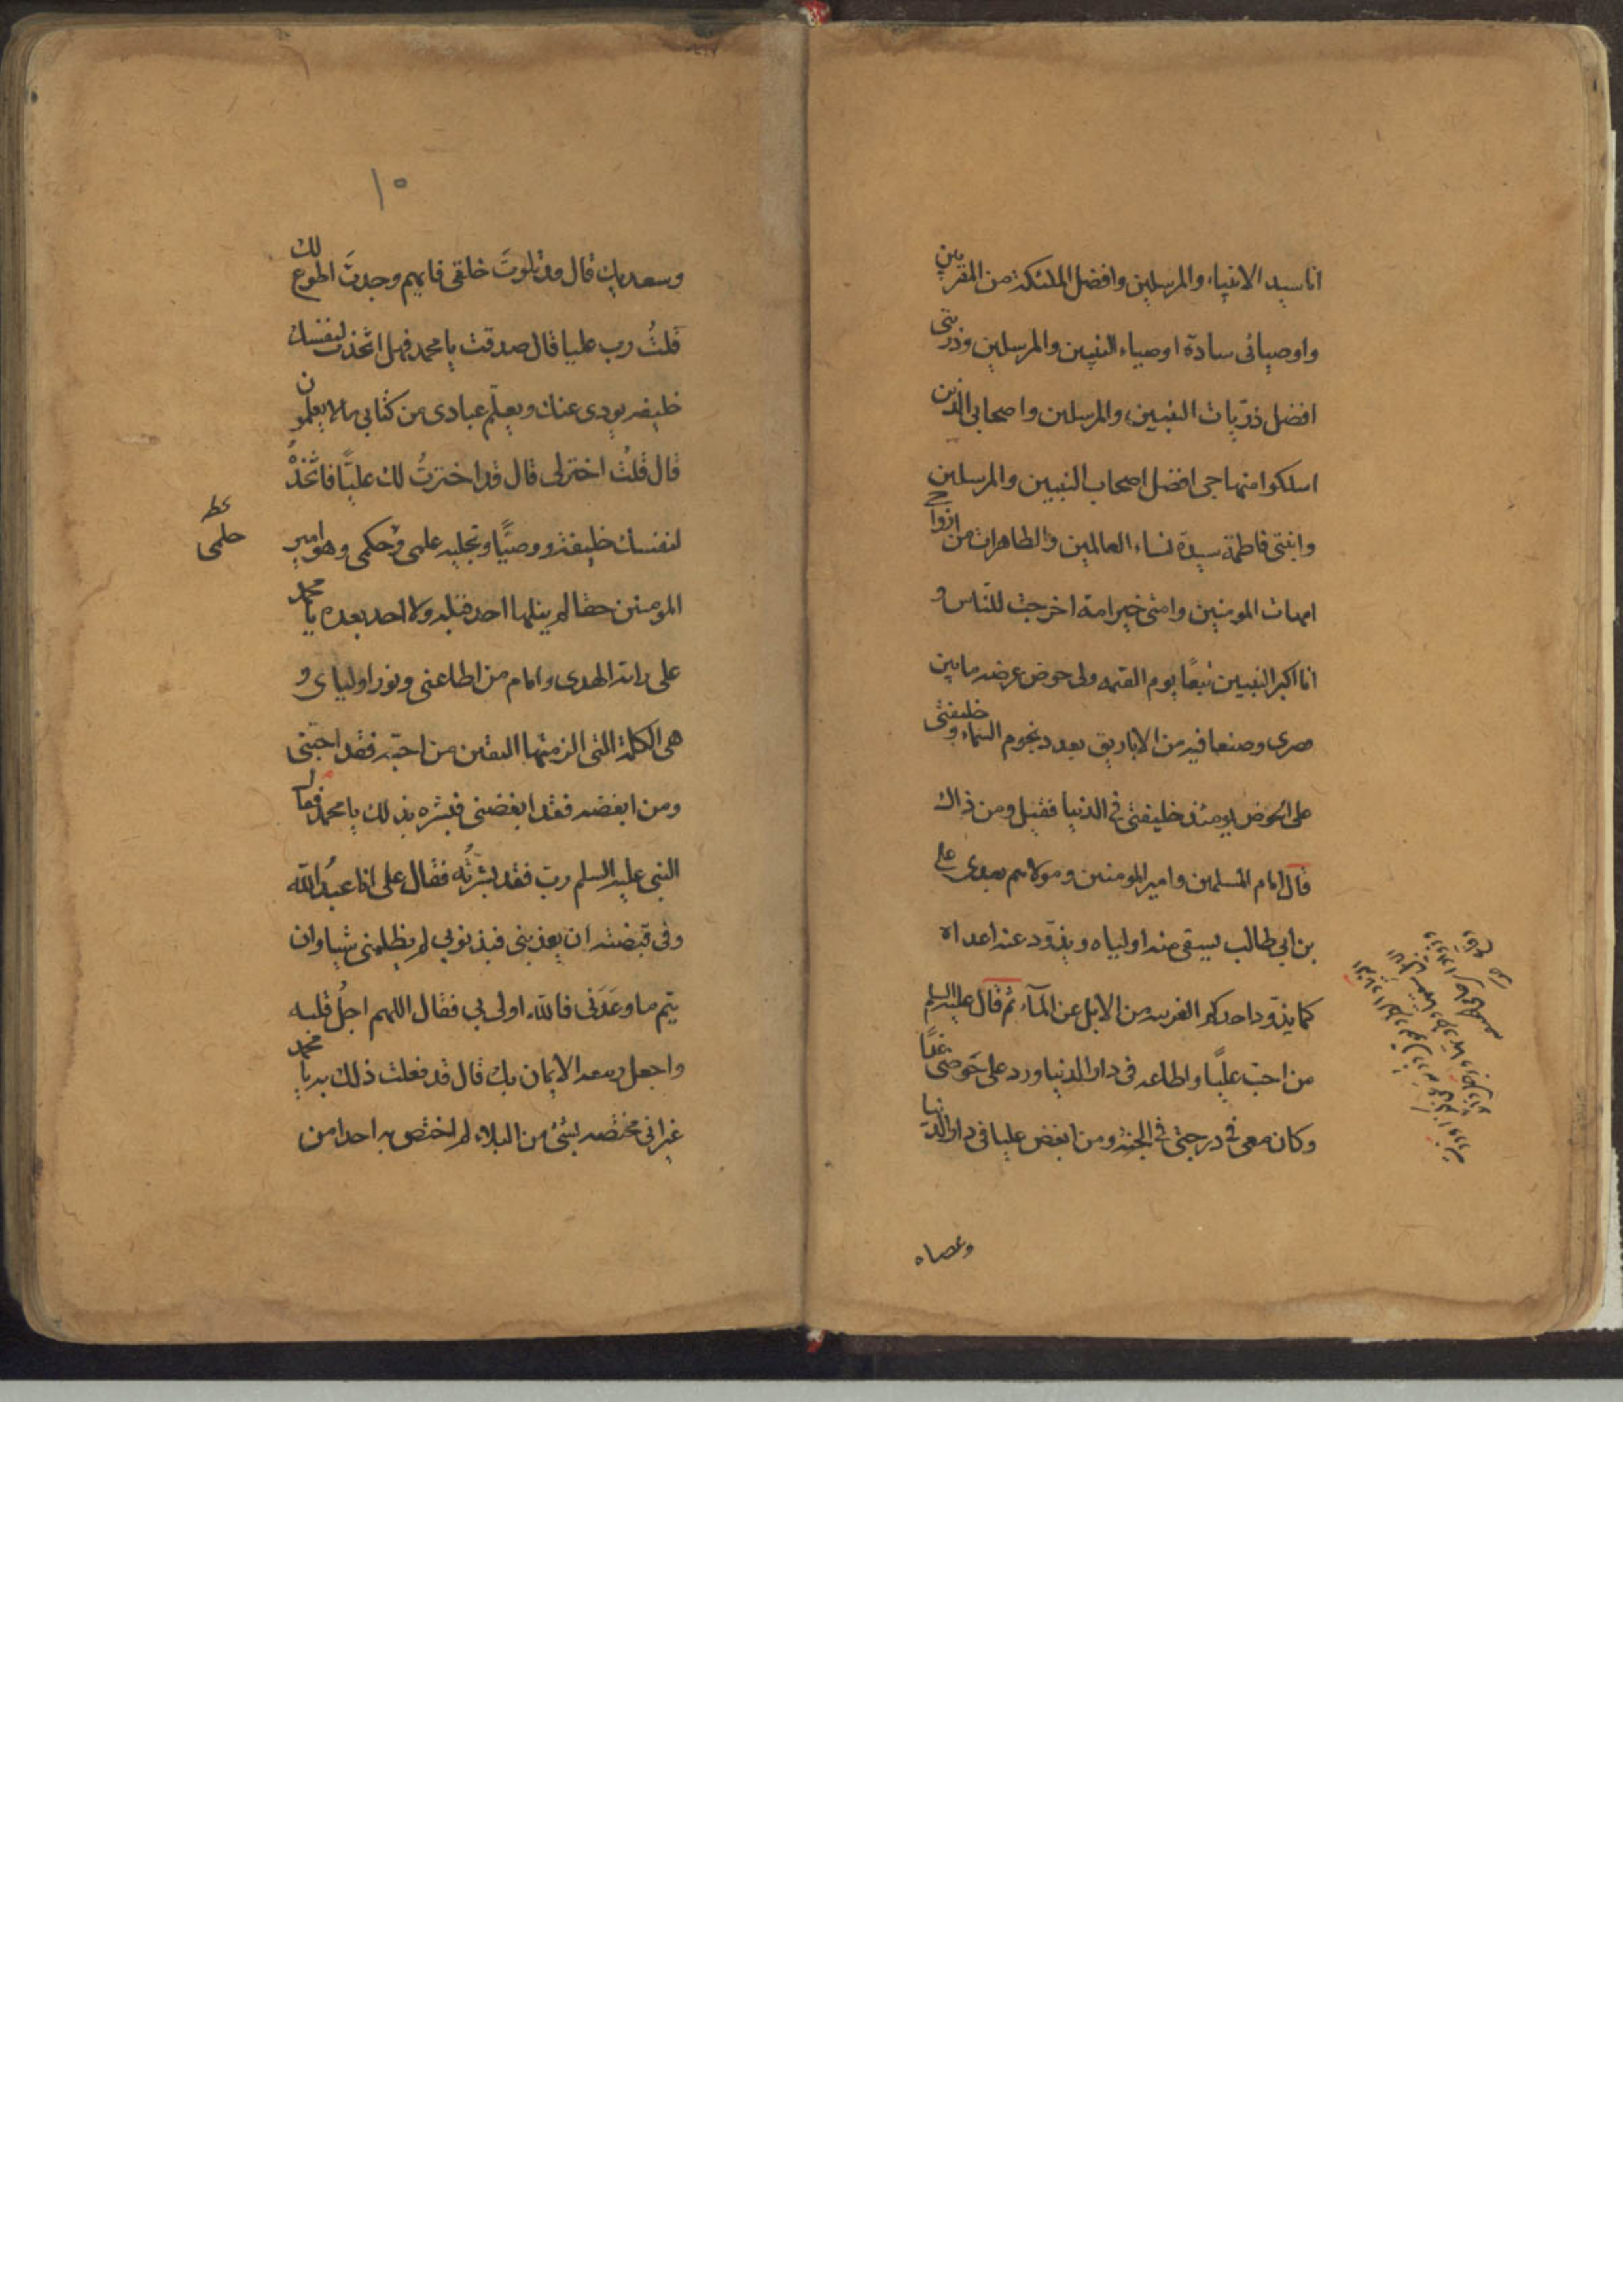 انا سيد الانبياء والمرسلين وافضل الملئكة من المقربين
واوصيائى سادة اوصياء النبيين والمرسلين وذريتى
افضل ذريات النبيين والمرسلين واصحابى الذين
اسلكوا منهاجى افضل اصحاب النبيين والمرسلين
وابنتى فاطمة سيدة نساء العالمين والطاهرات من ازواجى
امهات المومنين وامتى خير امة اخرجت للناس و
انا اكبر النبيين تبعًا يوم القيمه ولى حوض عرضه ما بين
بصرى وصنعا فيه من الاباريق بعدد نجوم السماء وخليفتى
على الحوض يومئذ خليفتى فى الدنيا فقيل ومن ذاك
قال امام المسلمين وامير المومنين ومولاهم بعدى على
بن ابى طالب يسقى منه اولياه ويذود عنه اعداه
كما يذود احدكم الغريبه من الابل عن المآء ثم قال عليه السلم
من احبّ عليًا واطاعه فى دار الدنيا ورد على حَوضى غدًا
وكان معى فى درجتى فى الجنة ومن ابغض عليا فى دار الدنيا
وعصاه
١٥
وسعديك قال قد بلوتَ خلقى فايهم وجدتَ اطوع لك
قلتُ رب عليا قال صدقت يا محمد فهل اتخذت لنفسك
خليفه يودى عنك ويعلّم عبادى من كتابى ما لا يعلمون
قال قلتُ اختر لى قال قد اخترتُ لك عليًّا فاتّخذهُ
لنفسك خليفة ووصيًّا ونحليه علمى وحكمى وهو امير
حلمى
المومنين حقا لم ينلها احد قبله ولا احد بعده يا محمد
على راية الهدى وامام من اطاعنى ونور اولياى و
هى الكلمة التى الزمتها المتقين من احبّه فقد احبّنى
ومن ابغضه فقد ابغضنى فبشره بذلك يا محمد فقال
النبى عليه السلم ربّ فقد بشرتُه فقال على انا عبدُ الله
وفى قبضته ان يعذبنى فبذنوبى لم يظلمنى شيا وان
يتم ما وعَدَنى فالله اولى بى فقال اللهم اجلُ قلبه
واجعل ربيعه الايمان بك قال قد فعلت ذلك به يا محمد
غير انى مختصه بشئ من البلاء لم اختص به احدا من